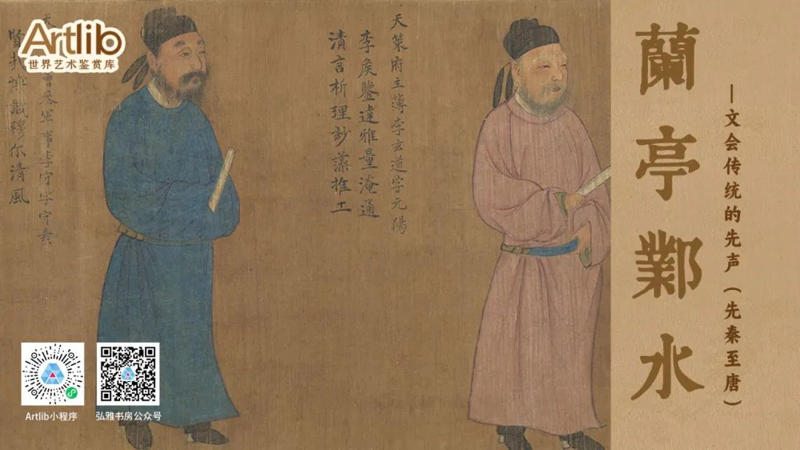 Artlib
世界艺术鉴赏库
蘭亭鄴水
—文会传统的先声（先秦至唐）
天策府主薄李玄道字元陽
李侯鑒達雅量淹通
清言析理妙藻推工
曹參軍事李守素字守素
識穆尔清風
Artlib小程序
弘雅书房公众号